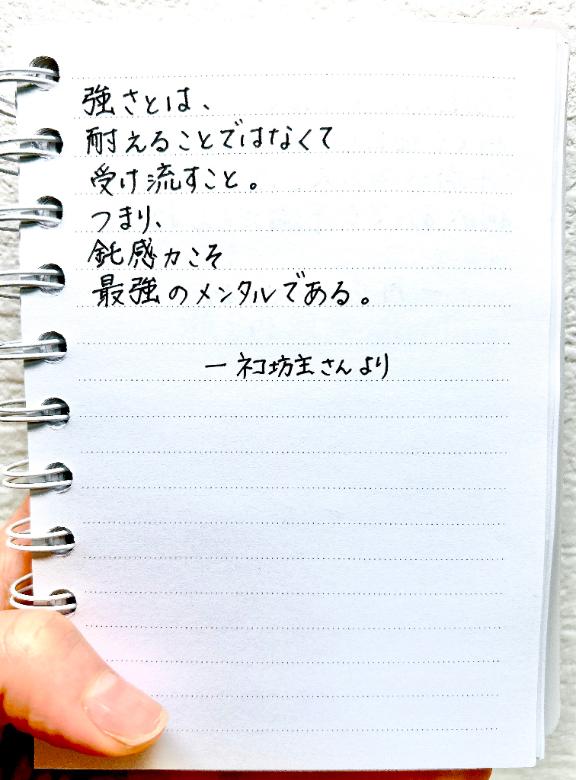 強さとは、
耐えることではなくて
受け流すこと。
つまり、
鈍感力こそ
最強のメンタルである。
ーネコ坊主さんより